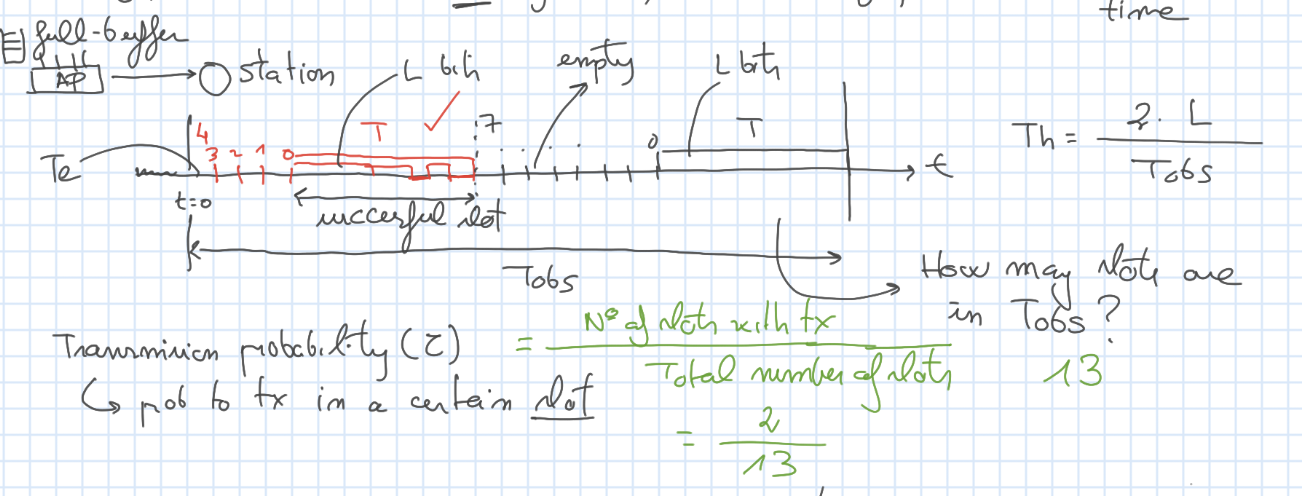 time
full-buffer
AP
station
L bits
empty
L bits
4 3 2 1 0
T
7
0
T
Te
t
t=0
succesful slot
Th = 2. L / Tobs
Tobs
How may slots are
in Tobs?
13
Transmission probability (τ) = Nº of slots with tx / Total number of slots
prob to tx in a certain slot
= 2 / 13